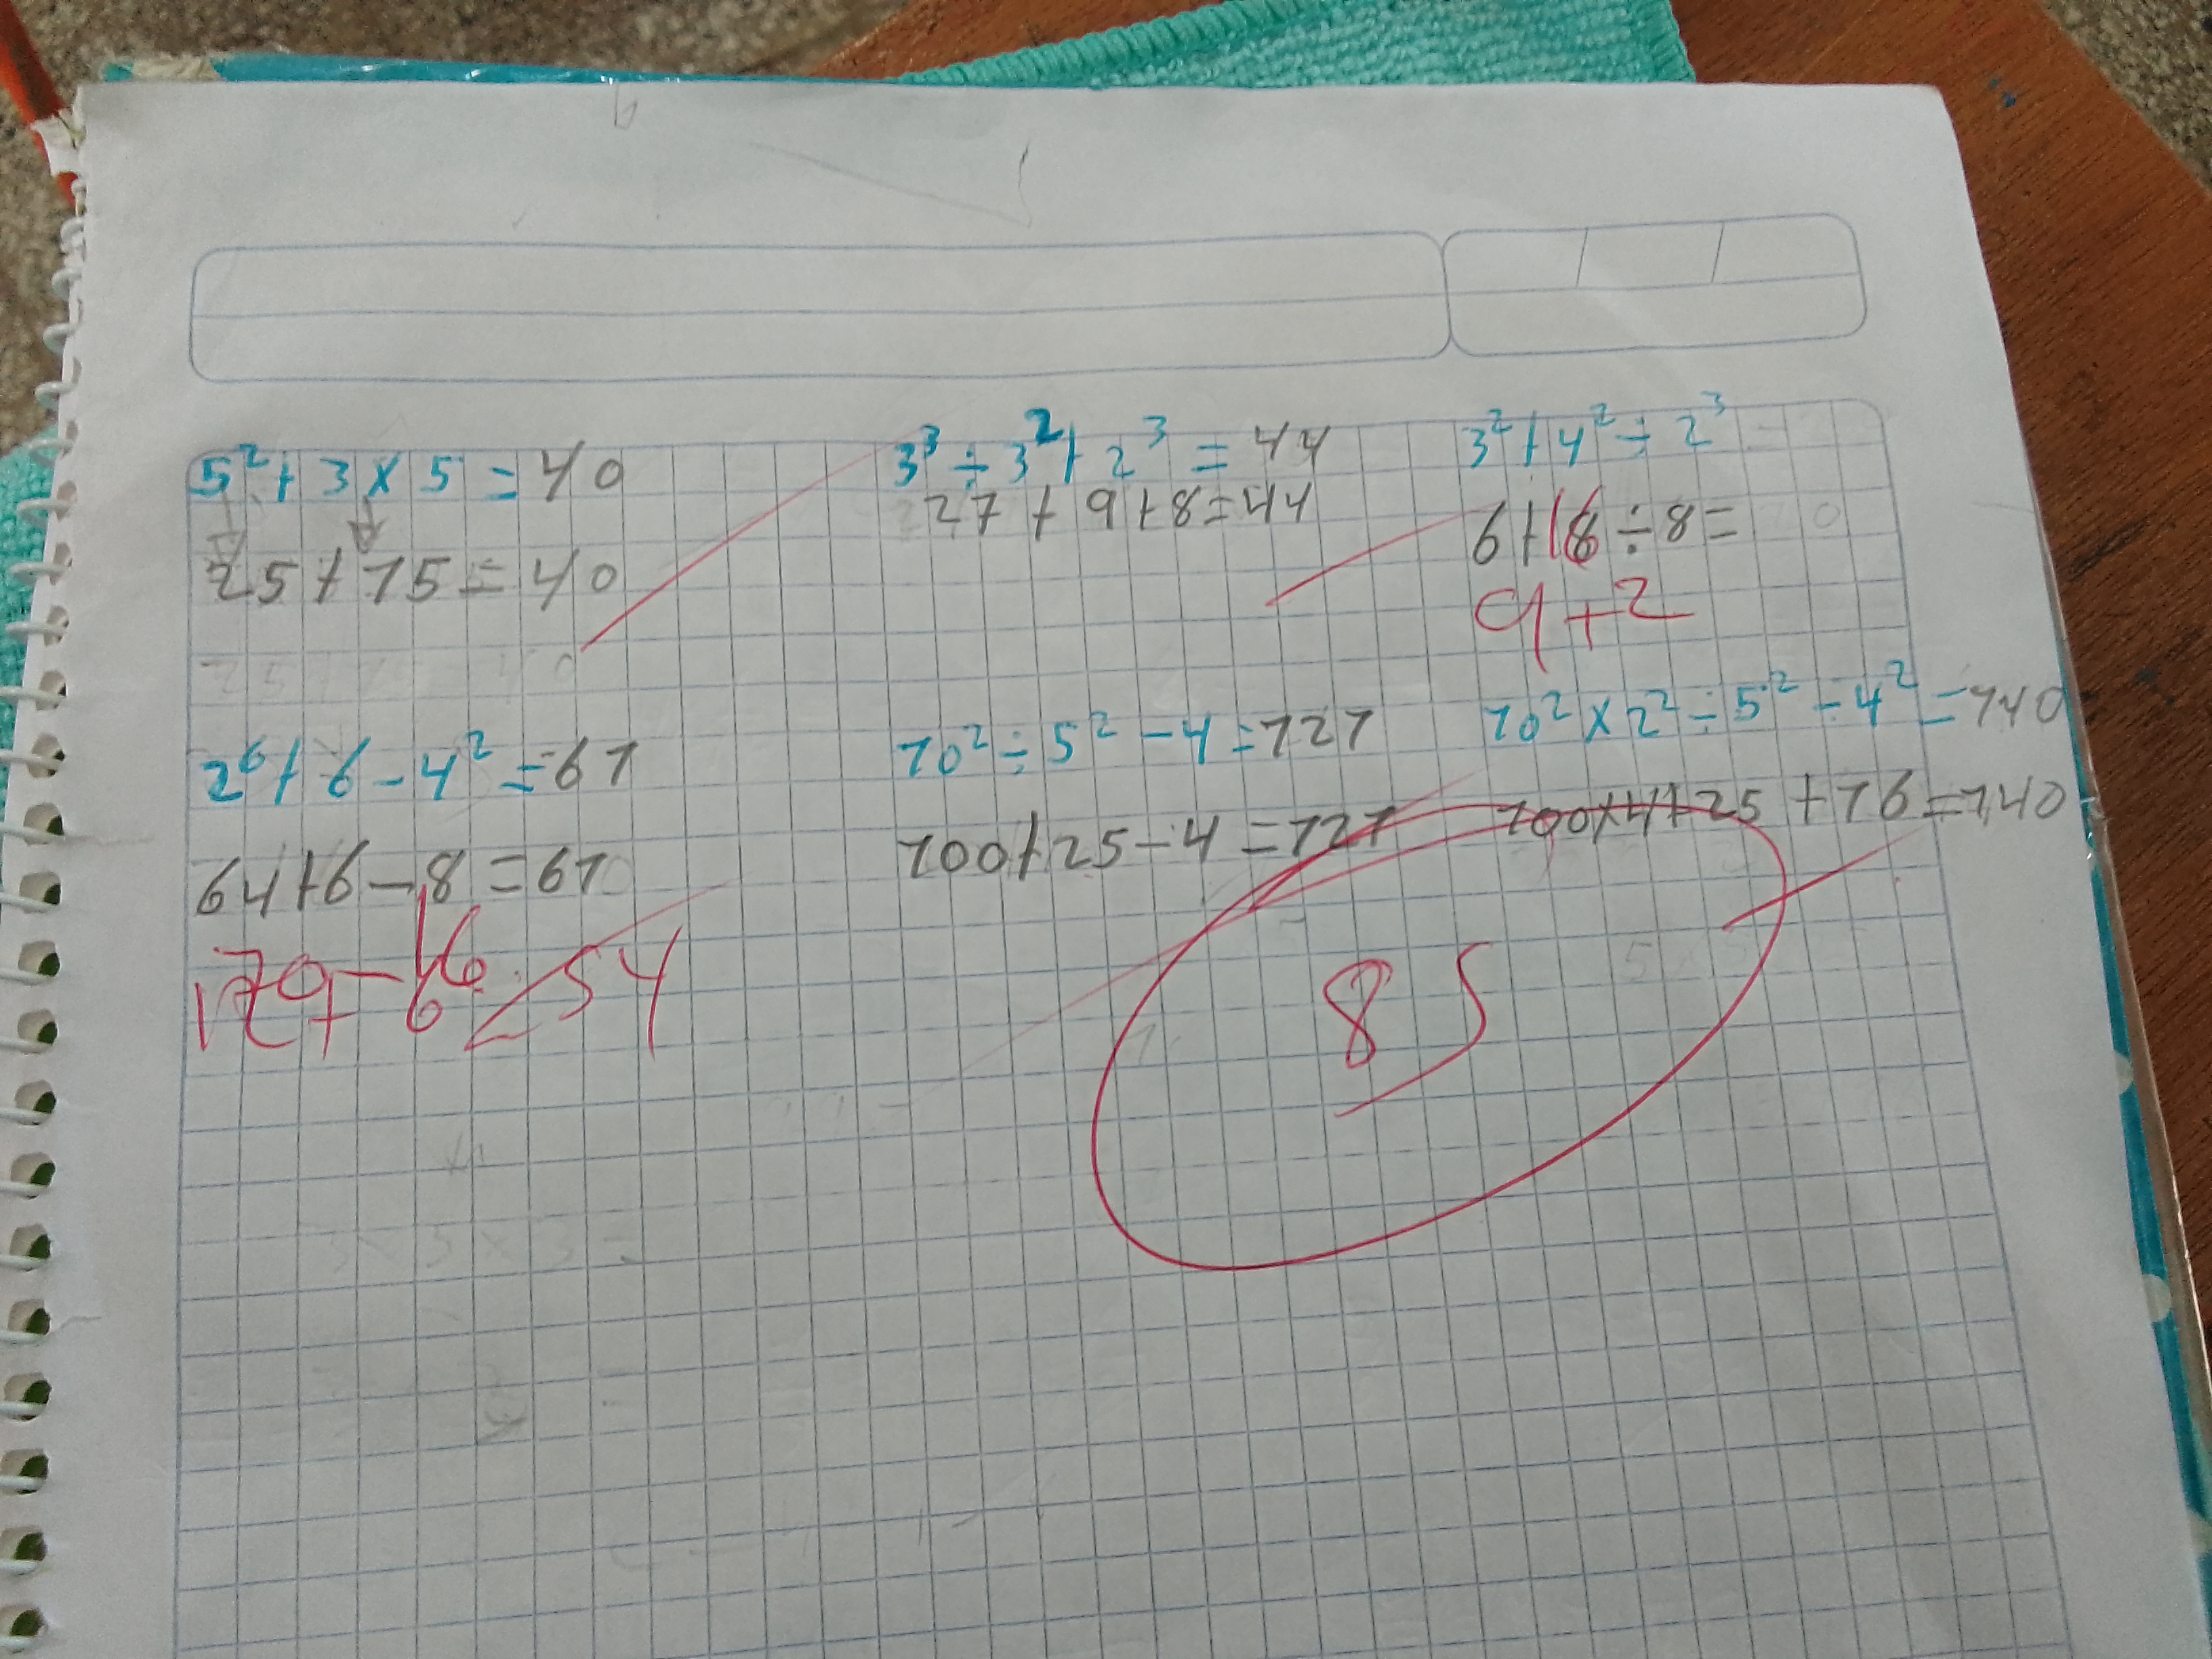 5² + 3 x 5 = 40
25 + 15 = 40
3³ ÷ 3² + 2³ = 44
27 + 9 + 8 = 44
3² + 4² ÷ 2³
6 + 16 ÷ 8 =
9 + 2
2⁶ + 6 - 4² = 61
64 + 6 - 8 = 61
170 - 16
54
10² ÷ 5² - 4 = 121
100 + 25 - 4 = 121
10² x 2² ÷ 5² - 4² = 140
100 x 4 + 25 + 16 = 140
85
3 x 3 x 3 =